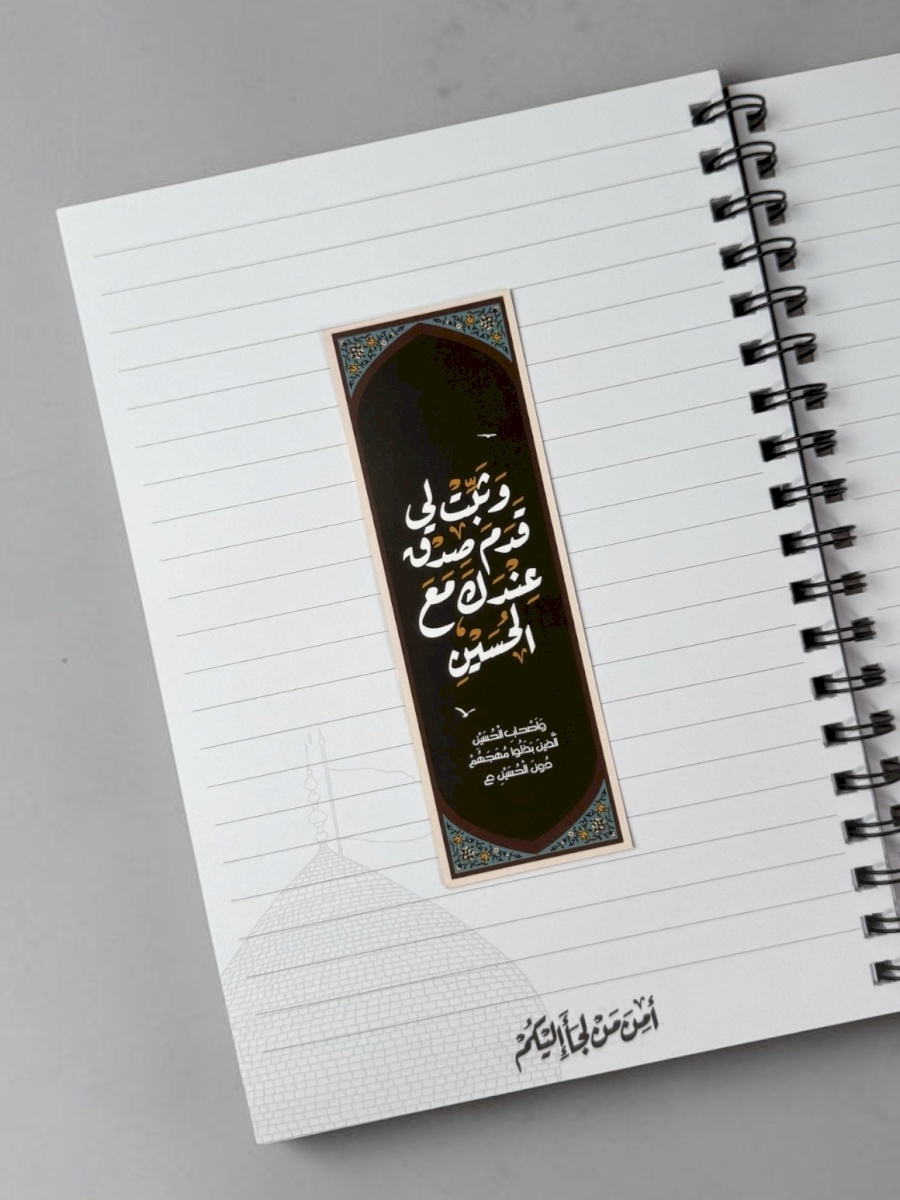 وَثَبِّتْ لِي
قَدَمَ صِدْق
عِنْدَكَ مَعَ
الحُسَيْنِ
وَأَصْحَابِ الْحُسَيْنِ
الَّذِينَ بَذَلُوا مُهَجَهُمْ
دُونَ الْحُسَيْنِ ع
أَمِنَ مَنْ لَجَأَ إِلَيْكُمْ